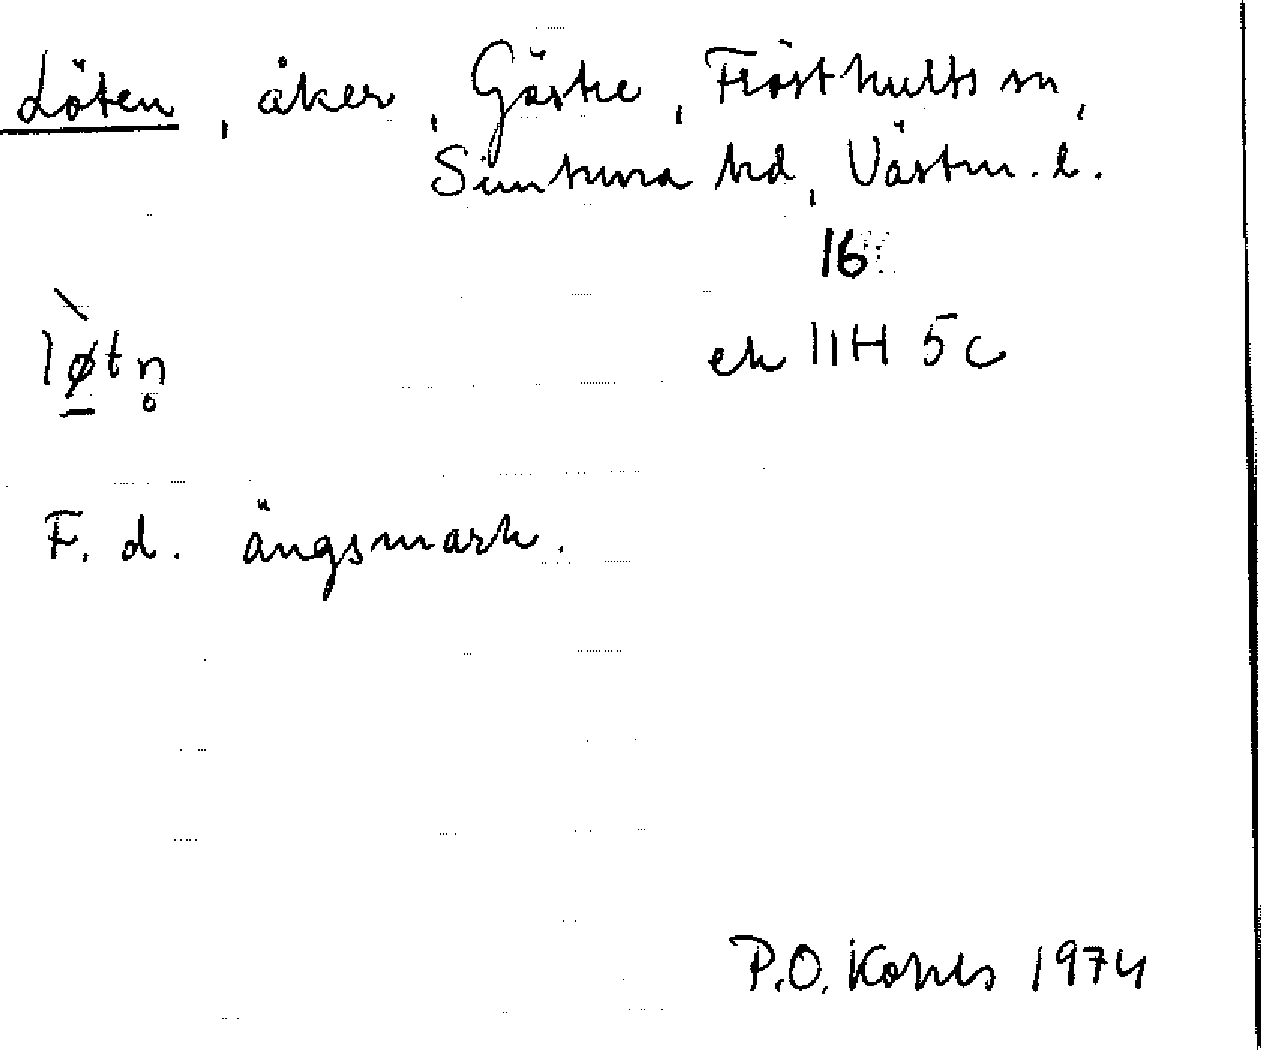 Löten, åker, Gästre, Frösthults sn,
Simtuna hd, Västm. l.
16
ek 11H 5c
lø̱̀tn̥
F. d. ängsmark.
P.O. 1974